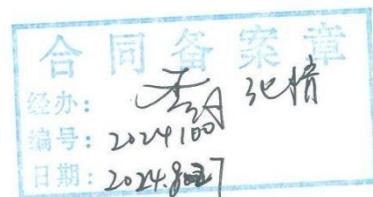 合同备案章
经办： 张情
编号：2024100
日期：2024.8.27